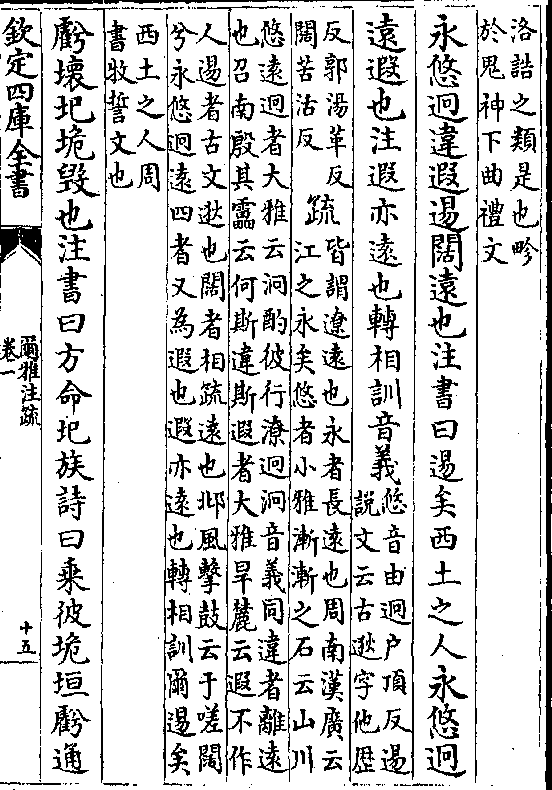 洛誥之類是也畛
於鬼神下曲禮文
永悠迥違遐逷闊遠也注書曰逷矣西土之人永悠迥
遠遐也注遐亦遠也轉相訓音義
悠音由迥户頂反逷
説文云古逖字他歷
反郭湯革反
闊苦沽反
疏
皆謂遼遠也永者長遠也周南漢廣云
江之永矣悠者小雅漸漸之石云山川
悠遠迥者大雅云泂酌彼行潦迥泂音義同違者離遠
也召南殷其靁云何斯違斯遐者大雅旱麓云遐不作
人逷者古文逖也闊者相疏遠也邶風擊鼓云于嗟闊
兮永悠迥遠四者又為遐也遐亦遠也轉相訓爾逷矣
西土之人周
書牧誓文也
虧壞圮垝毀也注書曰方命圮族詩曰乘彼垝垣虧通
欽定四庫全書
爾雅注疏
卷一
十五